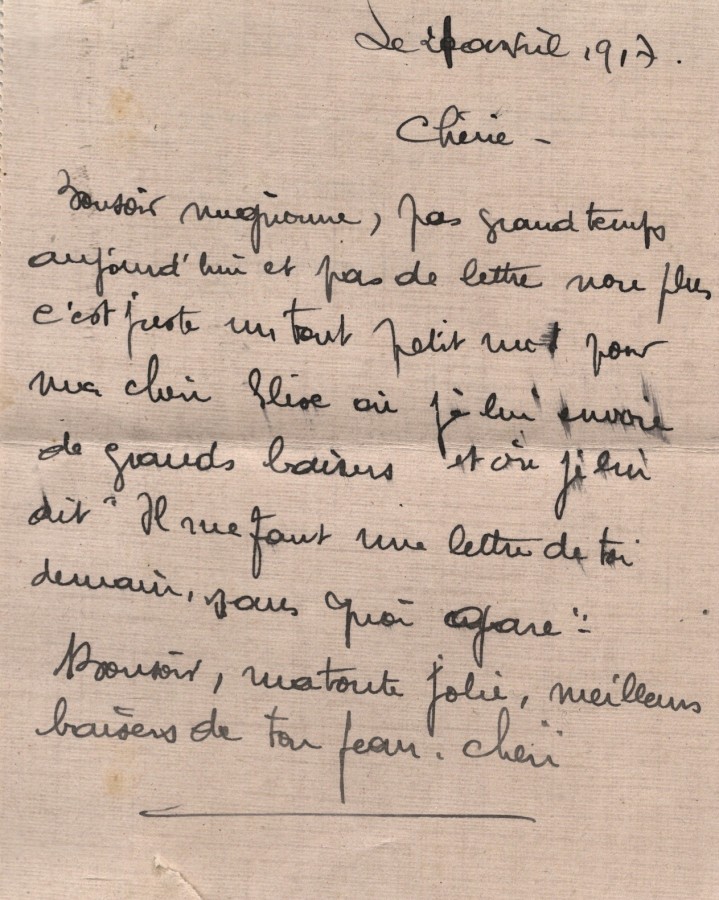 Le avril 1917.
Chérie -
Bonsoir mignonne, pas grand temps
aujourd'hui et pas de lettre non plus
c'est juste un tout petit mot pour
ma chéri Elise où je lui envoie
de grands baisers et où je lui
dit " Il me faut une lettre de toi
demain, sans quoi gare "-
Bonsoir, ma toute jolie, meilleurs
baisers de ton Jean. chéri